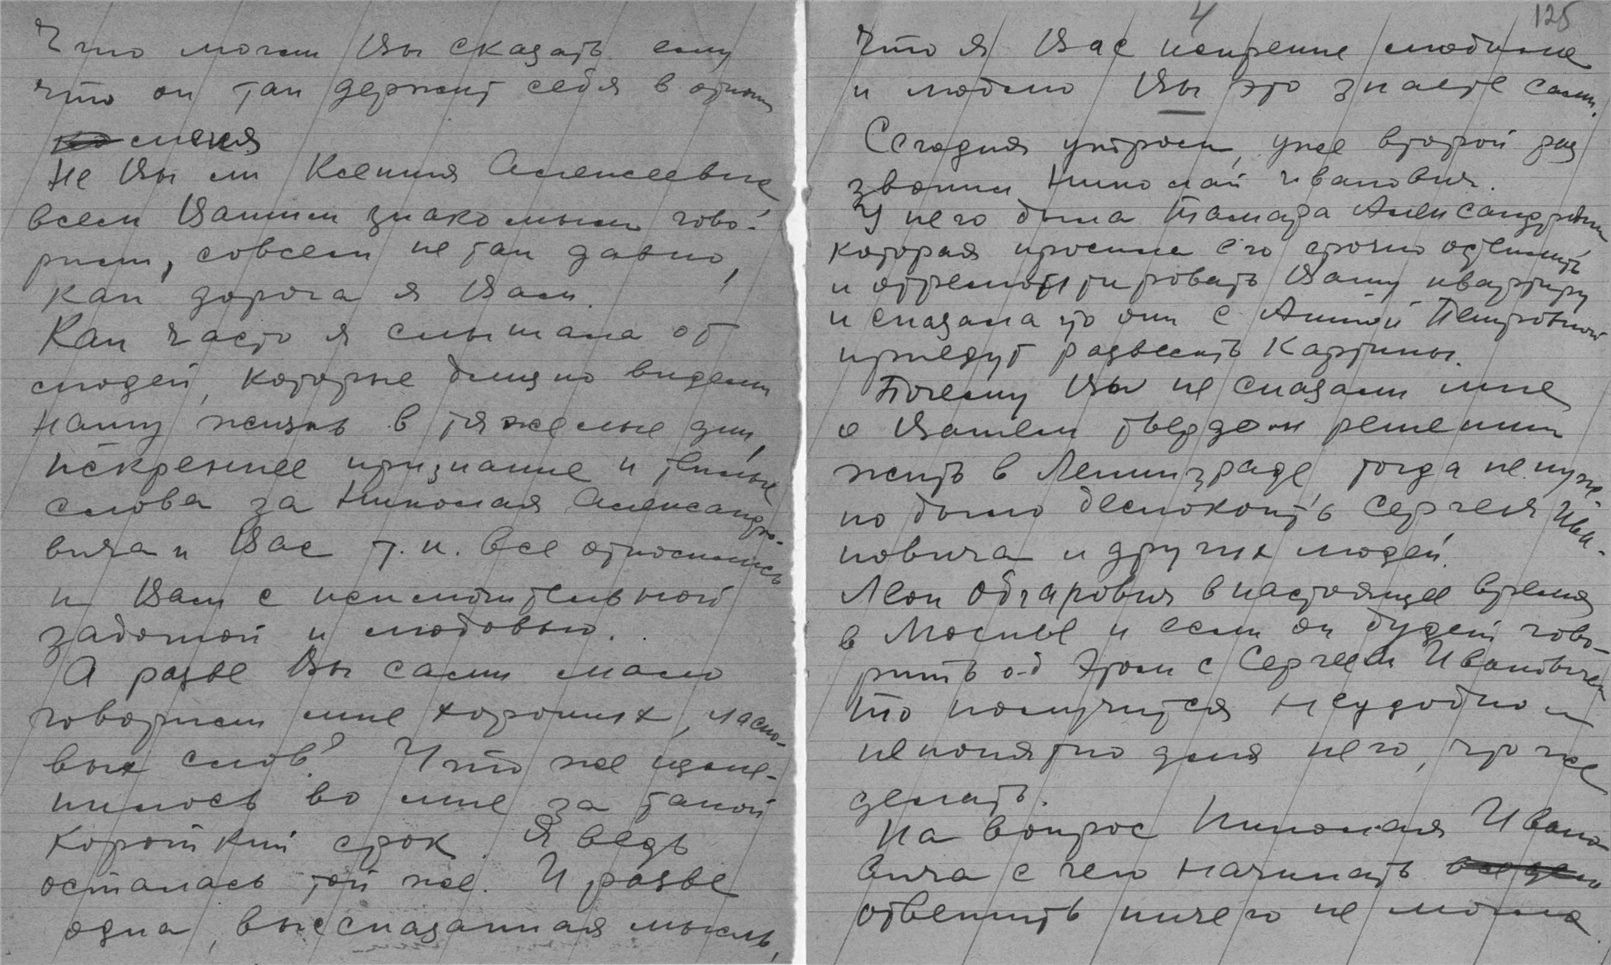 Что могли Вы сказать ему
что он так держит себя в отнош
меня
Не Вы ли Ксения Алексеевне
всем Вашим знакомым гово-
рили, совсем не так давно,
как дорога я Вам.
Как часто я слышала от
людей, которые близко видели
нашу жизнь в тяжелые дни,
искреннее признание и теплые
слова за Николая Александро-
вича и Вас т.к. все относились
к Вам с исключительной
заботой и любовью.
А разве Вы сами мало
говорили мне хороших, ласко-
вых слов? Что же изме-
нилось во мне за такой
короткий срок. Я ведь
осталась той же. И разве
одна, высказанная мысль,
4
125
Что я Вас искренне любила
и люблю Вы это знаете сами.
Сегодня утром, уже второй раз
звонил Николай Иванович.
У него была Тамара Александровна
которая просила его срочно оценить
и отремонтировать Вашу квартиру
и сказала что они с Анной Петровной
приедут развесить картины.
Почему Вы не сказали мне
о Вашем твердом решении
жить в Ленинграде тогда не нуж-
но было беспокоить Сергея Ива-
новича и других людей.
Леон Обгарович в настоящее время
в Москве и если он будет гово-
рить об этом с Сергеем Ивановичем
то получится неудобно и
непонятно для него, что же
делать.
На вопрос Николая Ивано-
вича с чего начинать
ответить ничего не могла.